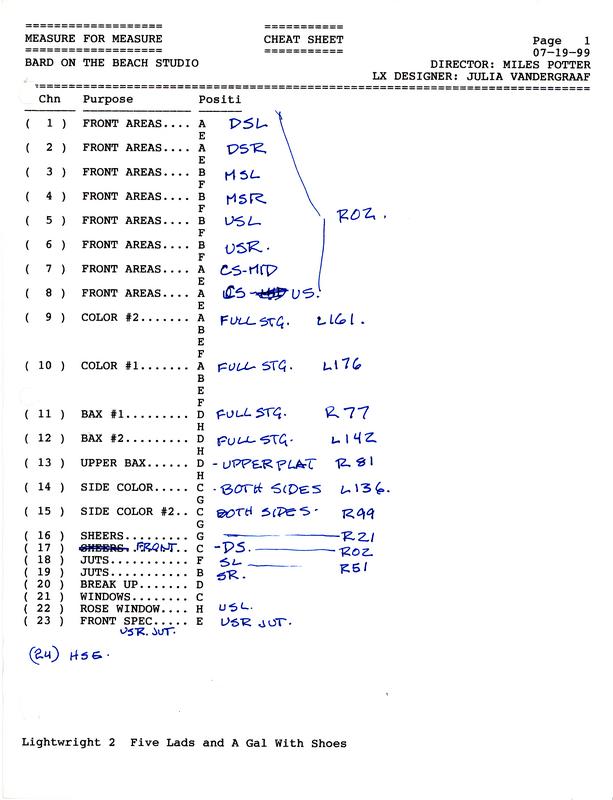 ===================== ============
MEASURE FOR MEASURE CHEAT SHEET Page 1
===================== ============ 07-19-99
BARD ON THE BEACH STUDIO DIRECTOR: MILES POTTER
LX DESIGNER: JULIA VANDERGRAAF
Chn Purpose Positi
( 1 ) FRONT AREAS.... A DSL
E
( 2 ) FRONT AREAS.... A DSR
E
( 3 ) FRONT AREAS.... B MSL
F
( 4 ) FRONT AREAS.... B MSR
F R02.
( 5 ) FRONT AREAS.... B USL
F
( 6 ) FRONT AREAS.... B USR.
F
( 7 ) FRONT AREAS.... A CS-MID
E
( 8 ) FRONT AREAS.... A CS- US.
E
( 9 ) COLOR #2....... A FULL STG. L161.
B
E
F
( 10 ) COLOR #1....... A FULL STG. L176
B
E
F
( 11 ) BAX #1......... D FULL STG. R77
H
( 12 ) BAX #2......... D FULL STG. L142
H
( 13 ) UPPER BAX...... D - UPPER PLAT R81
H
( 14 ) SIDE COLOR..... C - BOTH SIDES L136.
G
( 15 ) SIDE COLOR #2.. C BOTH SIDES. R99
G
( 16 ) SHEERS......... G R21
( 17 ) SHEERS. FRONT.. C -DS. R02
( 18 ) JUTS........... F SL R51
( 19 ) JUTS........... B SR.
( 20 ) BREAK UP....... D
( 21 ) WINDOWS........ C
( 22 ) ROSE WINDOW.... H USL.
( 23 ) FRONT SPEC..... E USR JUT.
USR. JUT.
(24) HSE.
Lightwright 2 Five Lads and A Gal With Shoes